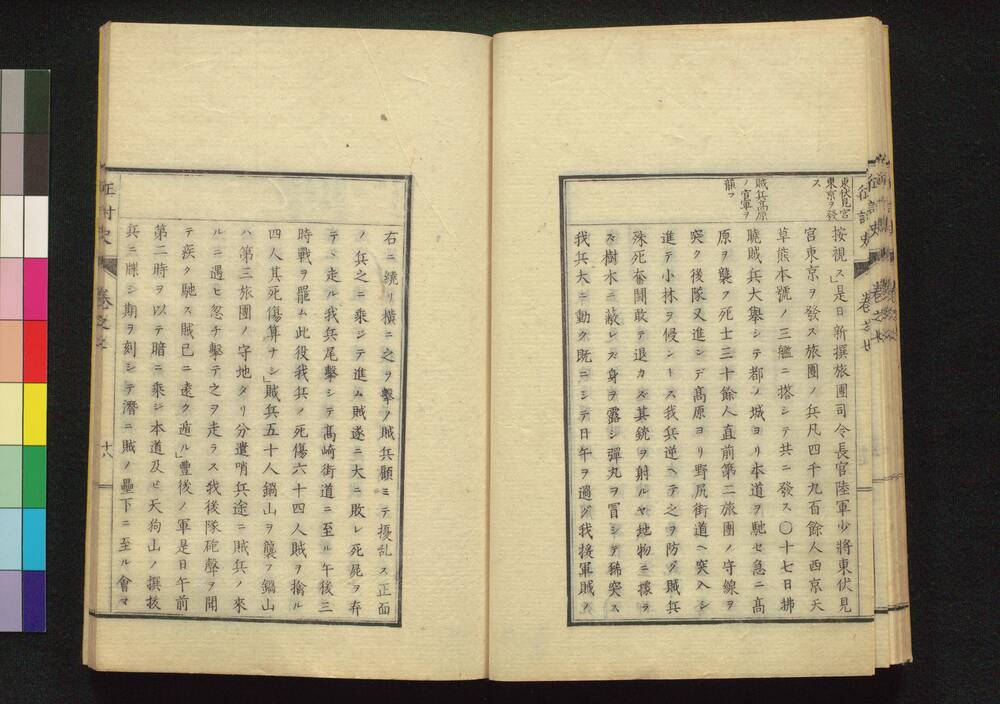 東伏見宮
東京ヲ發
ス
賊兵高原
ノ官軍ヲ
襲フ
按視ス」是日新撰旅團司令長官陸軍少將東伏見
宮東京ヲ發ス旅團ノ兵凡四千九百餘人西京天
草熊本號ノ三艦ニ搭シテ共ニ發ス〇十七日拂
曉賊兵大擧シテ都ノ城ヨリ本道ヲ馳セ急ニ高
原ヲ襲フ死士三十餘人直前第二旅團ノ守線ヲ
突ク後隊又進ンデ高原ヨリ野尻街道ヘ突入シ
進テ小林ヲ侵ントス我兵逆ヘテ之ヲ防グ賊兵
殊死奮鬪敢テ退カズ其銃ヲ射ルヤ地物ニ據ラ
ズ樹木ニ蔽レズ身ヲ露シ彈丸ヲ冒シテ豨突ス
我兵大ニ動ク既ニシテ日午ヲ過グ我援軍賊ノ
右ニ繞リ橫ニ之ヲ擊ツ賊兵顧ミテ擾乱ス正面
ノ兵之ニ乘ジテ進ム賊遂ニ大ニ敗レ死屍ヲ弃
テヽ走ル我兵尾擊シテ高崎街道ニ至ル午後三
時戰ヲ罷ム此役我兵ノ死傷六十四人賊ヲ擒ル
四人其死傷算ナシ」賊兵五十人鍋山ヲ襲フ鍋山
ハ第三旅團ノ守地タリ分遣哨兵途ニ賊兵ノ來
ルニ遇ヒ忽チ擊テ之ヲ走ラス我後隊砲聲ヲ聞
テ疾ク馳ス賊已ニ遠ク遁ル」豐後ノ軍是日午前
第二時ヲ以テ暗ニ乘ジ本道及ヒ天狗山ノ撰拔
兵ニ牒シ期ヲ刻シテ潛ニ賊ノ壘下ニ至ル會マ
征討史
卷之
十八